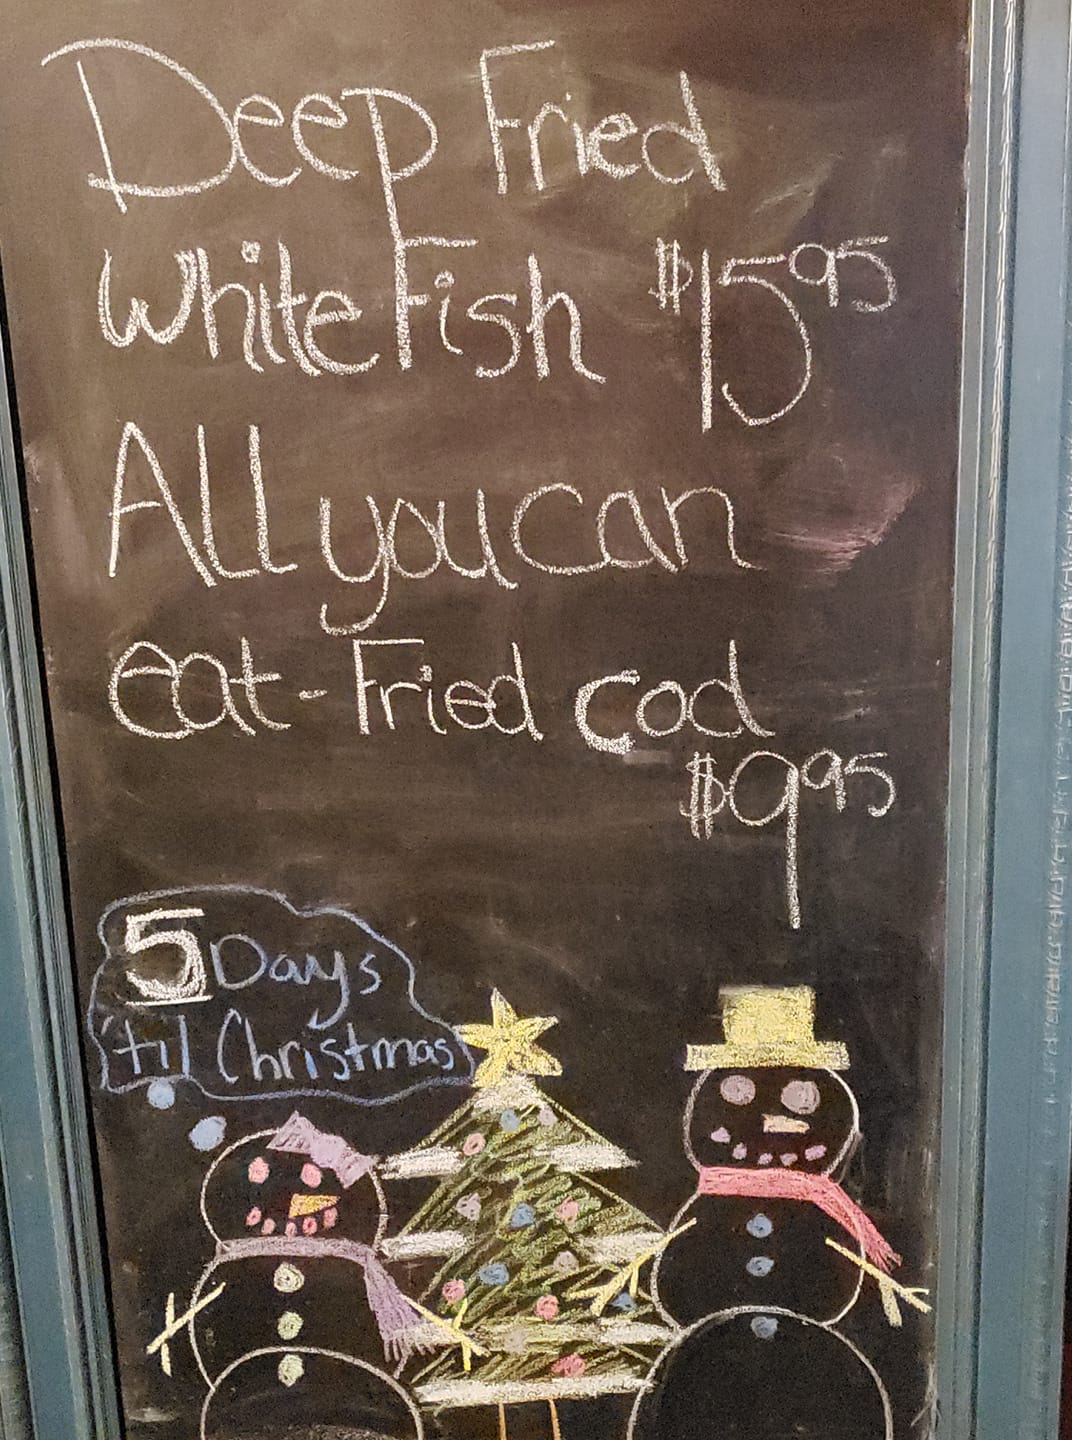 Deep Fried
White Fish $15.95
All you can
eat - Fried cod
$9.95
5 Days
'til Christmas